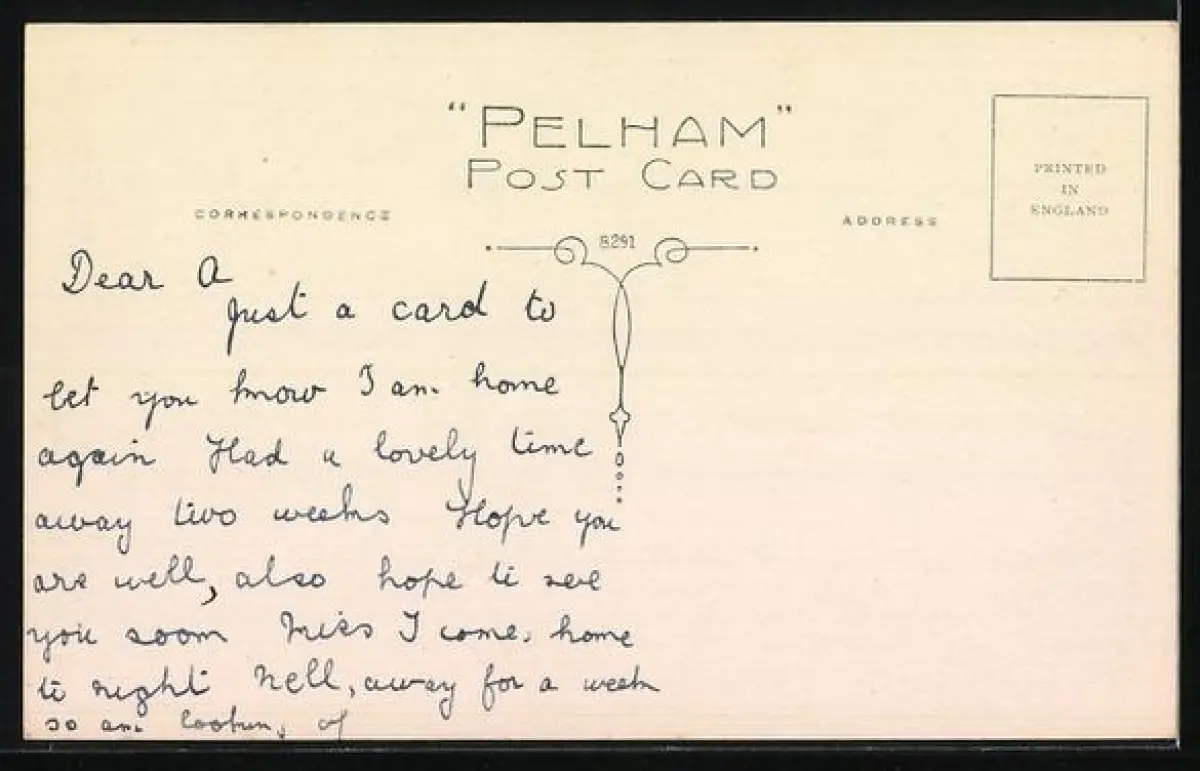 "PELHAM"
POST CARD
PRINTED
IN
ENGLAND
CORRESPONDENCE
ADDRESS
8291
Dear A
Just a card to
let you know I am. home
again Had a lovely time
away two weeks Hope you
are well, also hope to see
you soon Miss I come. home
to night Nell, away for a week
so am looking of